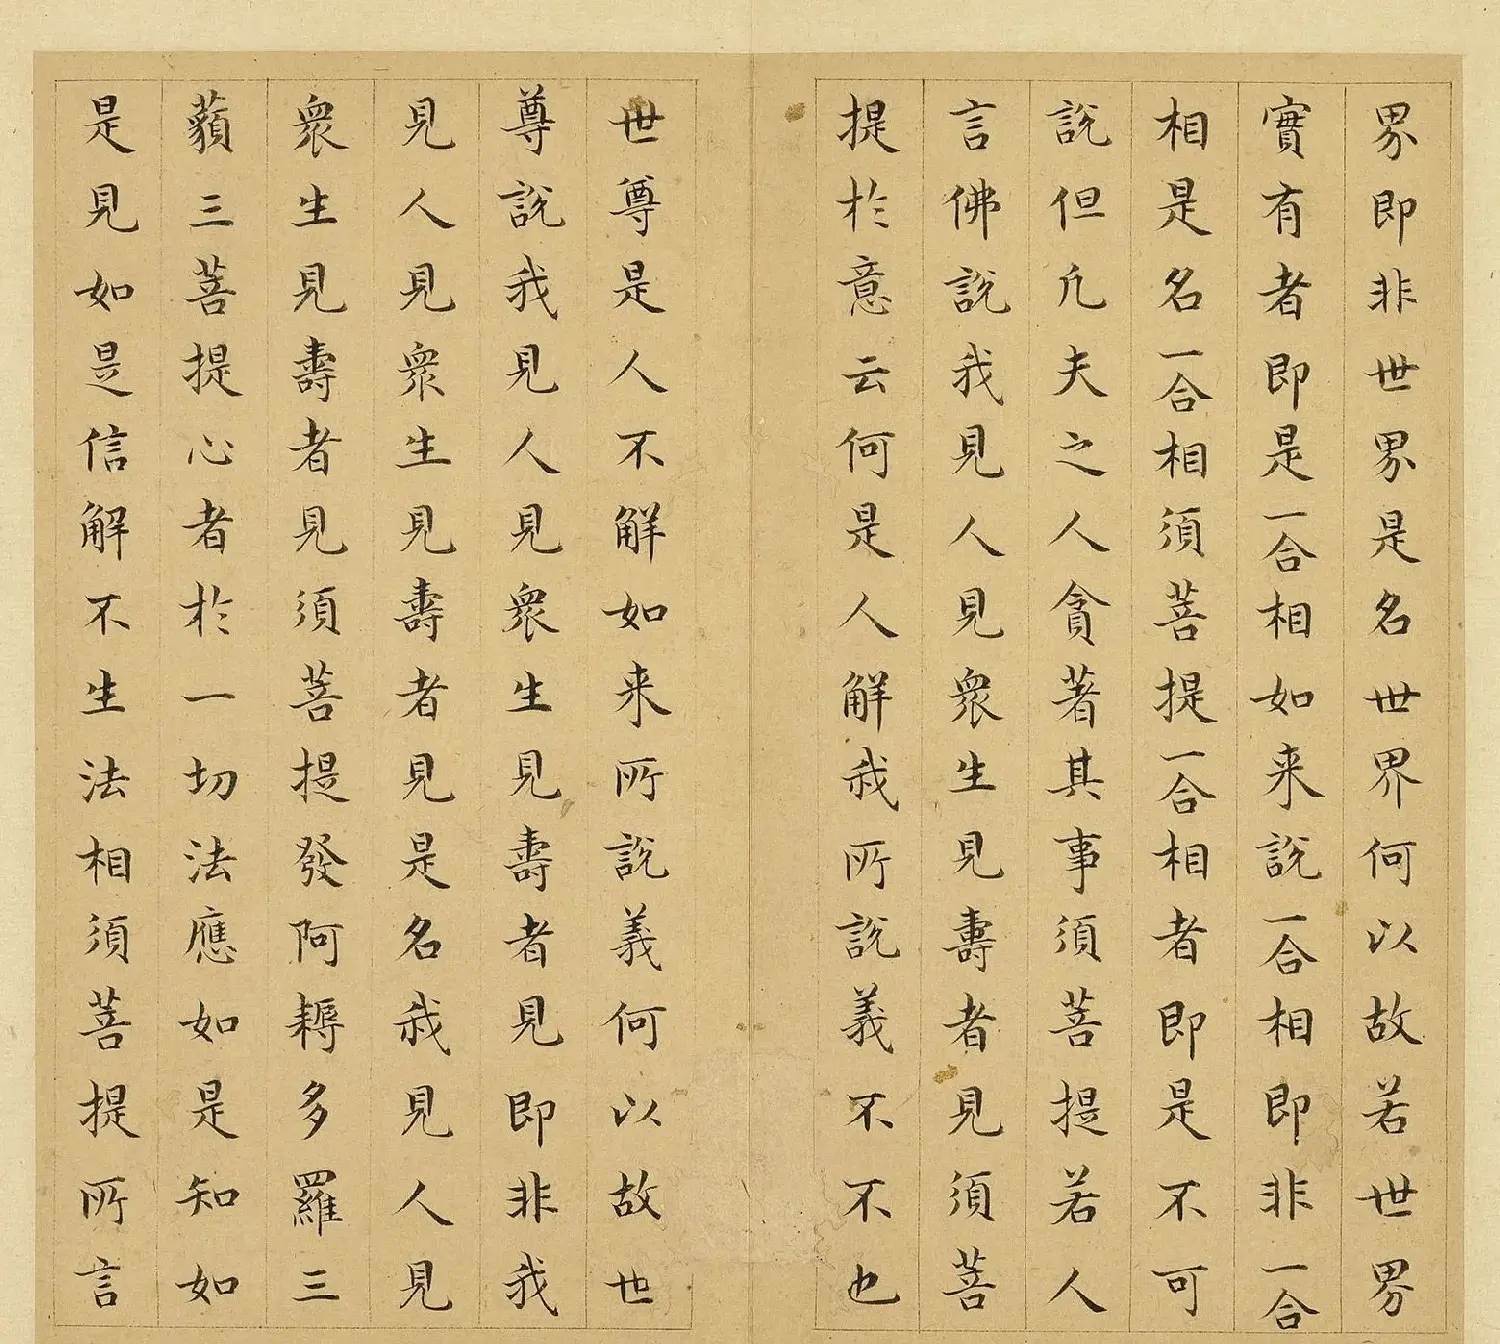 界即非世界是名世界何以故若世界
實有者即是一合相如来說一合相即非一合
相是名一合相須菩提一合相者即是不可
說但凡夫之人貪著其事須菩提若人
言佛說我見人見衆生見壽者見須菩
提於意云何是人解我所說義不不也
世尊是人不解如来所說義何以故世
尊說我見人見衆生見壽者見即非我
見人見衆生見壽者見是名我見人見
衆生見壽者見須菩提發阿耨多羅三
藐三菩提心者於一切法應如是知如
是見如是信解不生法相須菩提所言